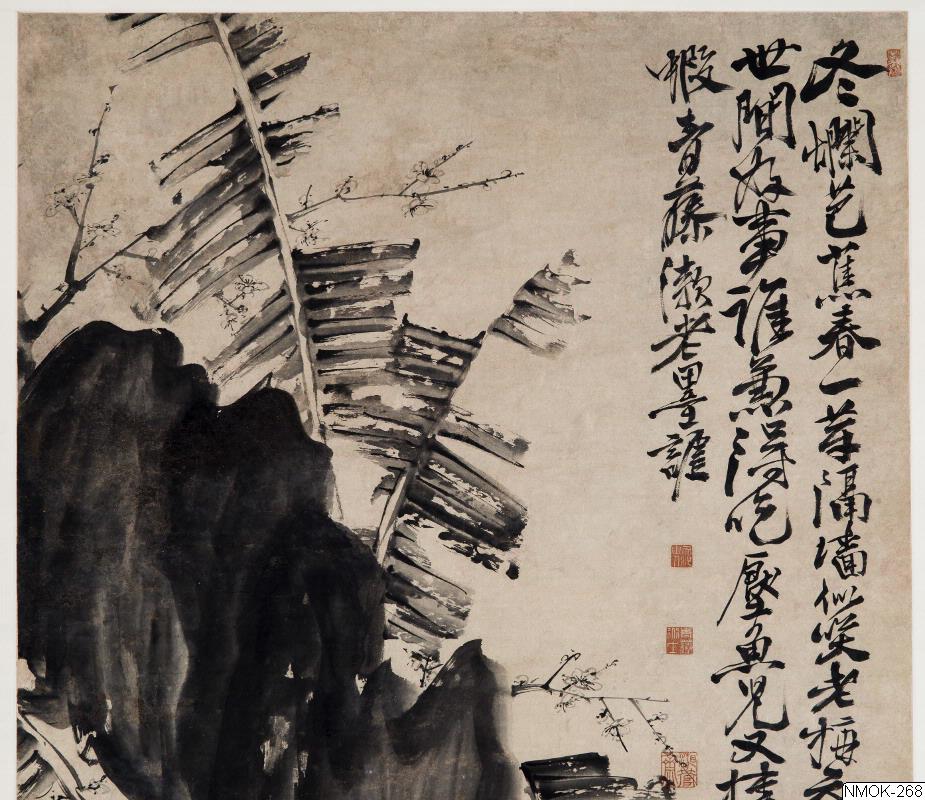 冬爛芭蕉春一芽隔墻似笑老梅
世間好事誰兼得吃壓魚兒又
蝦青藤漱老墨謔
NMOK-268